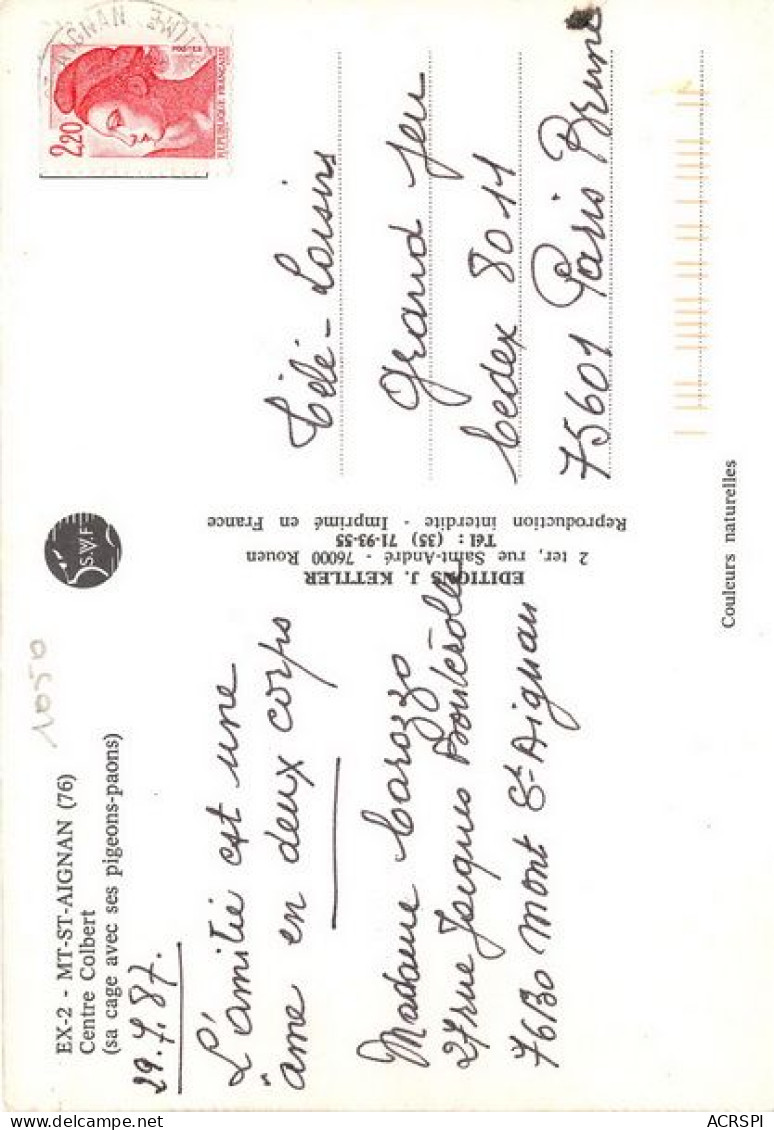 EX-2 - MT-ST-AIGNAN (76)
Centre Colbert
(sa cage avec ses pigeons-paons)
29.7.87.
L'amitié est une
âme en deux corps
Madame Carozzo
27 rue Jacques Boutérolle
76130 Mont St Aignan
S.W.F
EDITIONS J. KETTLER
2 ter, rue Saint-André - 76000 Rouen
Tél : (35) 71-93-55
Reproduction interdite - Imprimé en France
AIGNAN
POSTES
2,20
REPUBLIQUE FRANÇAISE
Télé-Loisirs
Grand jeu
Cedex 8011
75601 Paris Brune
Couleurs naturelles
ACRSPI